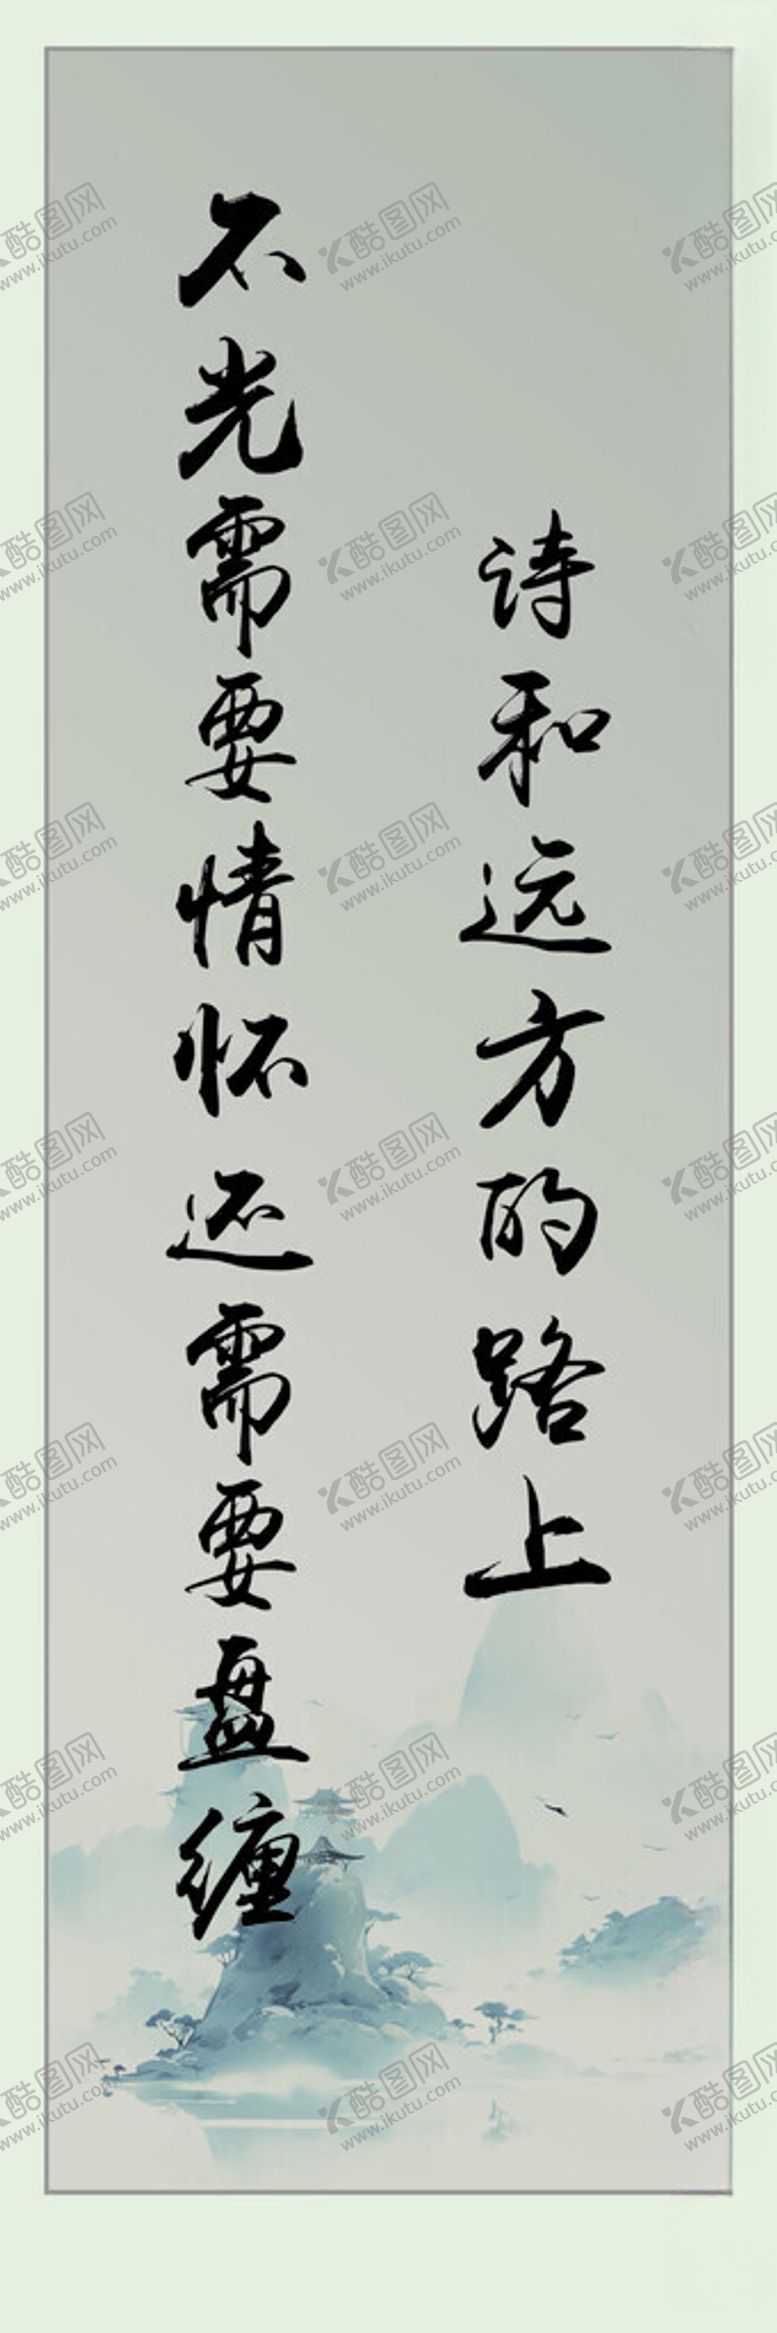 诗和远方的路上
不光需要情怀还需要盘缠
酷图网
www.ikutu.com